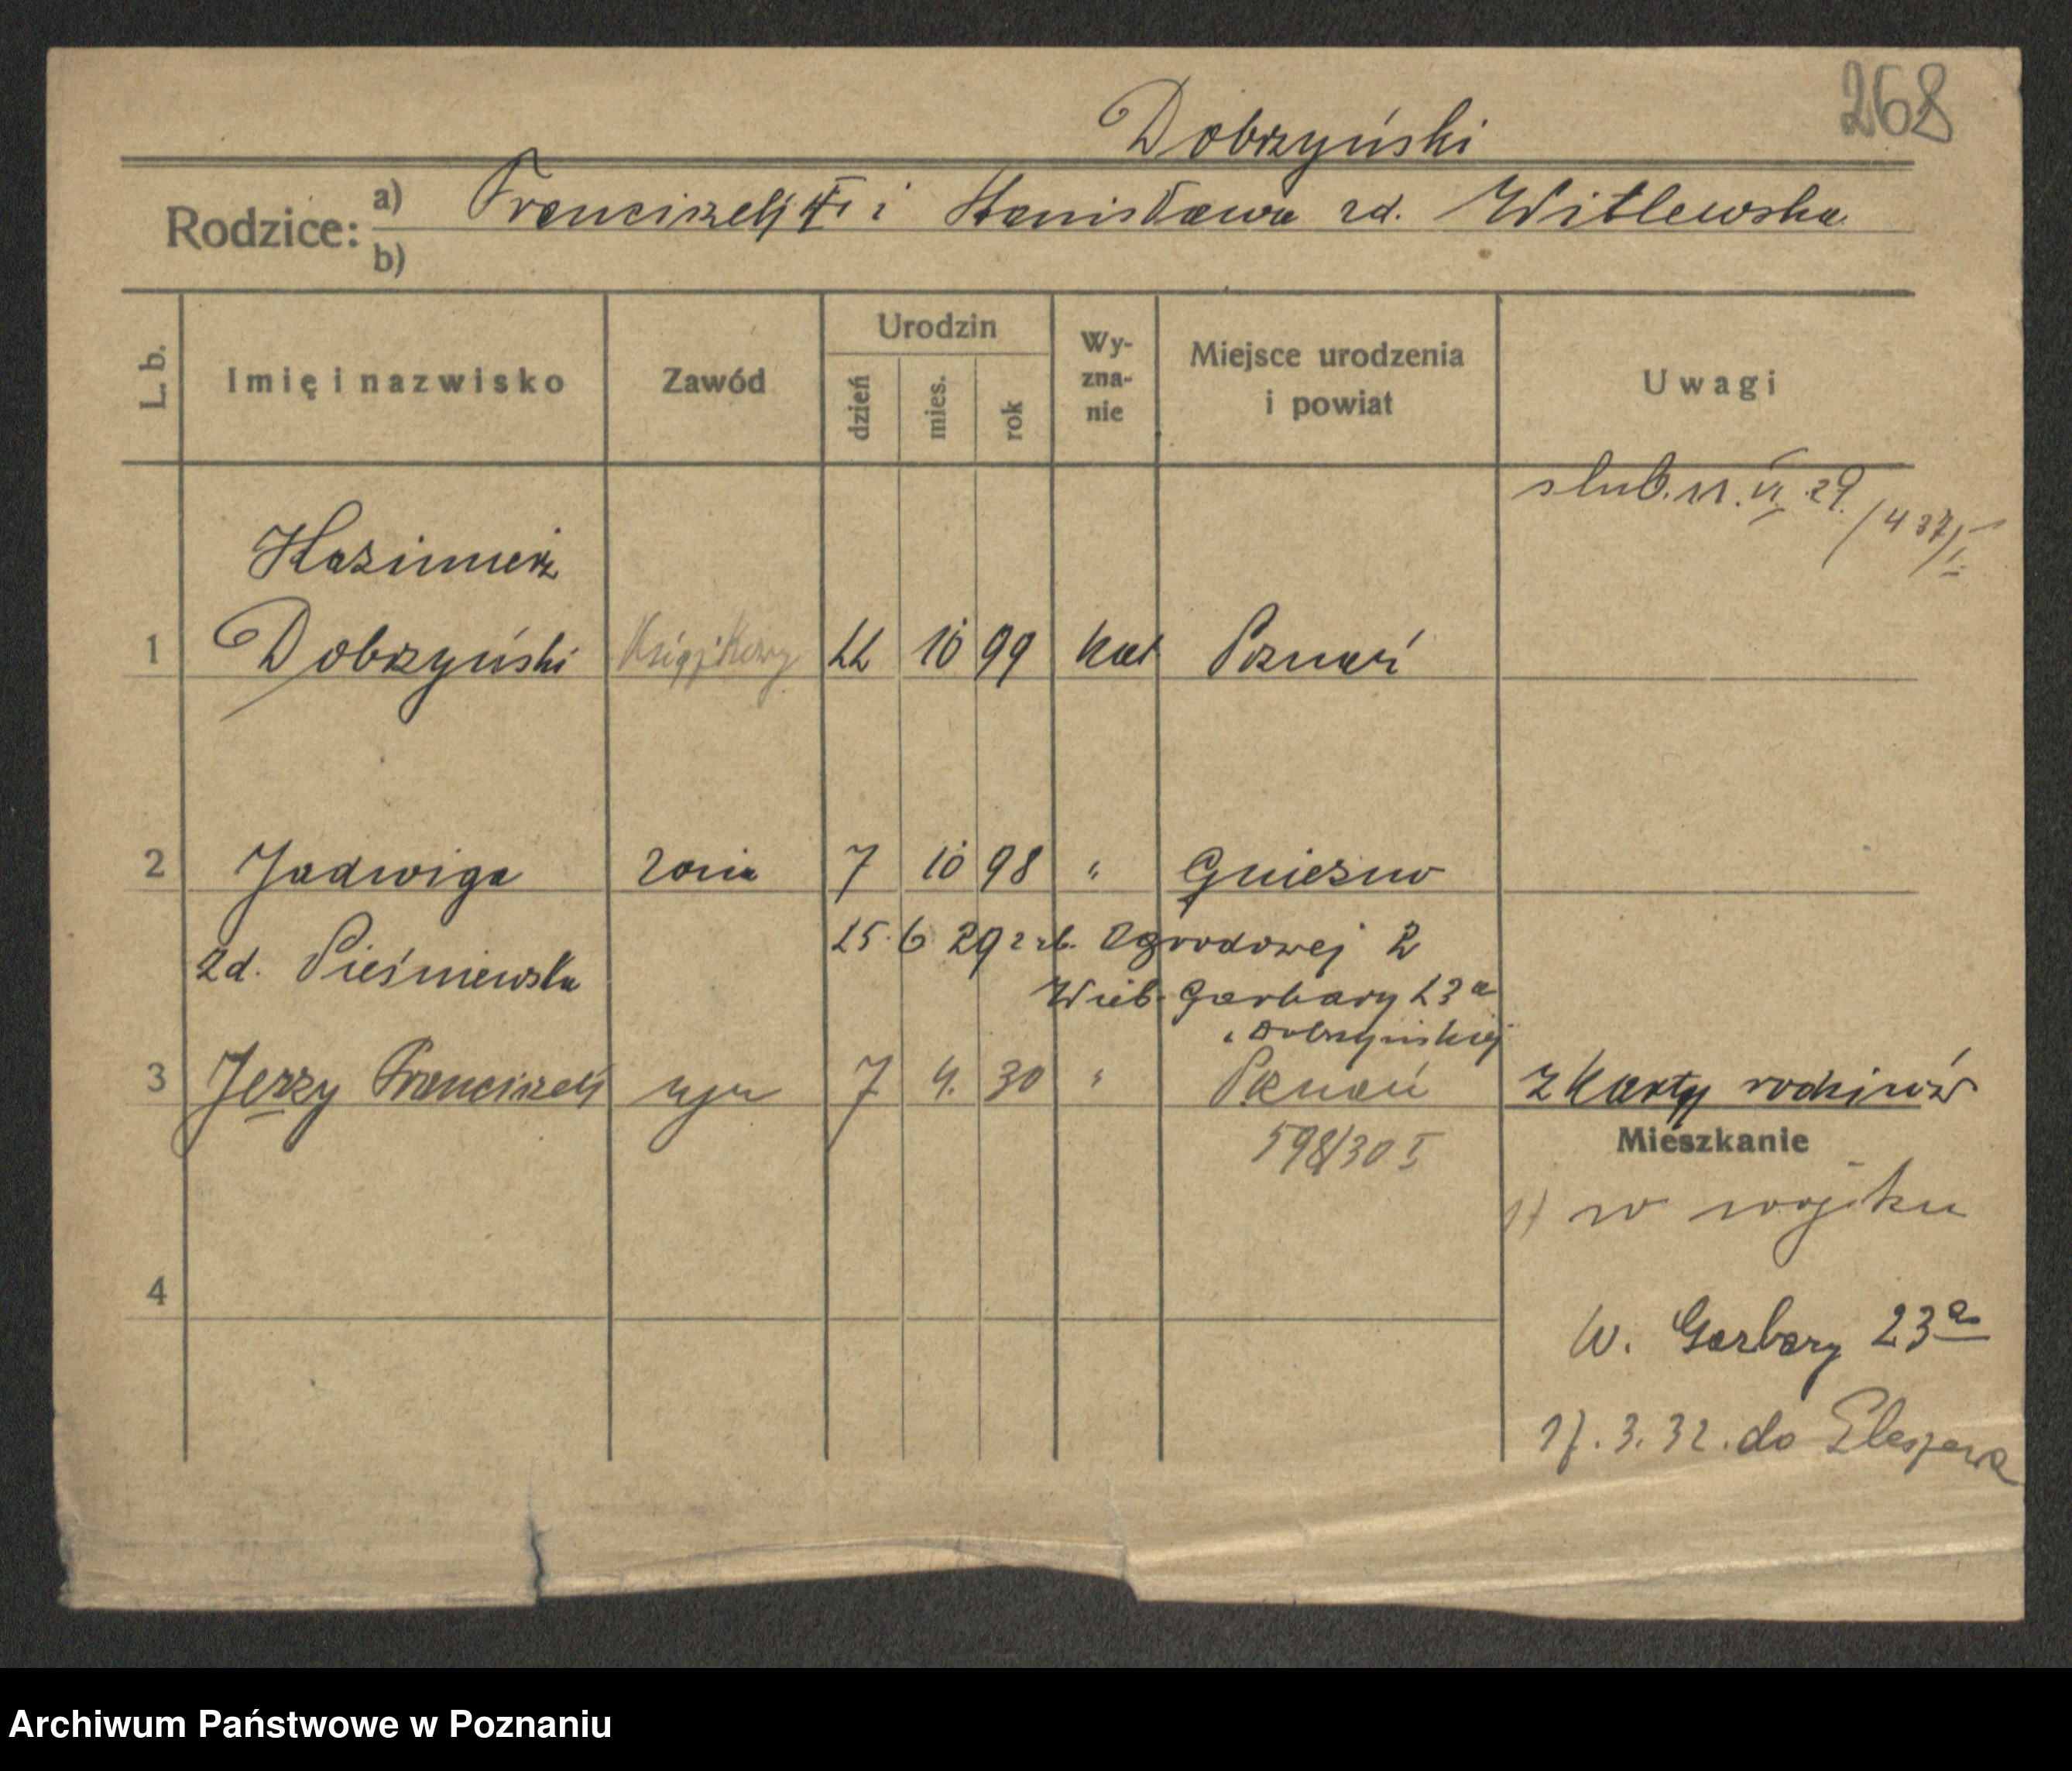 268
Dobrzyński
Rodzice: a) Franciszek i Stanisława zd. Witlewska
b)
L. b.
Imię i nazwisko
Zawód
Urodzin
dzień
mies.
rok
Wy-
zna-
nie
Miejsce urodzenia
i powiat
Uwagi
ślub. 11. VI. 29. / 437/I
Kazimierz
1 Dobrzyński Książkowy 22 10 99 kat Poznań
2 Jadwiga żona 7 10 98 " Gniezno
zd. Pieśniewska
25 6 29 z ul. Ogrodowej 2
Wielk. Garbary 23a
Dobrzyńskiej
3 Jerzy Franciszek syn 7 4. 30 " Poznań z karty rodziców
598/30 I
Mieszkanie
1) w wojsku
4
W. Garbary 23a
17. 3. 32. do
Archiwum Państwowe w Poznaniu